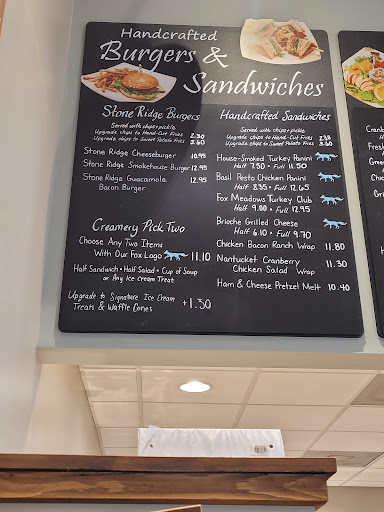 Handcrafted
Burgers &
Sandwiches
Stone Ridge Burgers
Served with chips + pickle
Upgrade chips to Hand-Cut Fries 2.30
Upgrade chips to Sweet Potato Fries 3.60
Stone Ridge Cheeseburger 10.95
Stone Ridge Smokehouse Burger 12.95
Stone Ridge Guacamole 12.95
Bacon Burger
Creamery Pick Two
Choose Any Two Items
With Our Fox Logo 11.10
Half Sandwich • Half Salad • Cup of Soup
or Any Ice Cream Treat
Upgrade to Signature Ice Cream
Treats & Waffle Cones +1.30
Handcrafted Sandwiches
Served with chips + pickle
Upgrade chips to Hand-Cut Fries
Upgrade chips to Sweet Potato Fries 3.60
House-Smoked Turkey Panini
Half 7.50 • Full 11.50
Basil Pesto Chicken Panini
Half 8.35 • Full 12.65
Fox Meadows Turkey Club
Half 9.00 • Full 12.95
Brioche Grilled Cheese
Half 6.10 • Full 9.70
Chicken Bacon Ranch Wrap 11.80
Nantucket Cranberry 11.30
Chicken Salad Wrap
Ham & Cheese Pretzel Melt 10.40